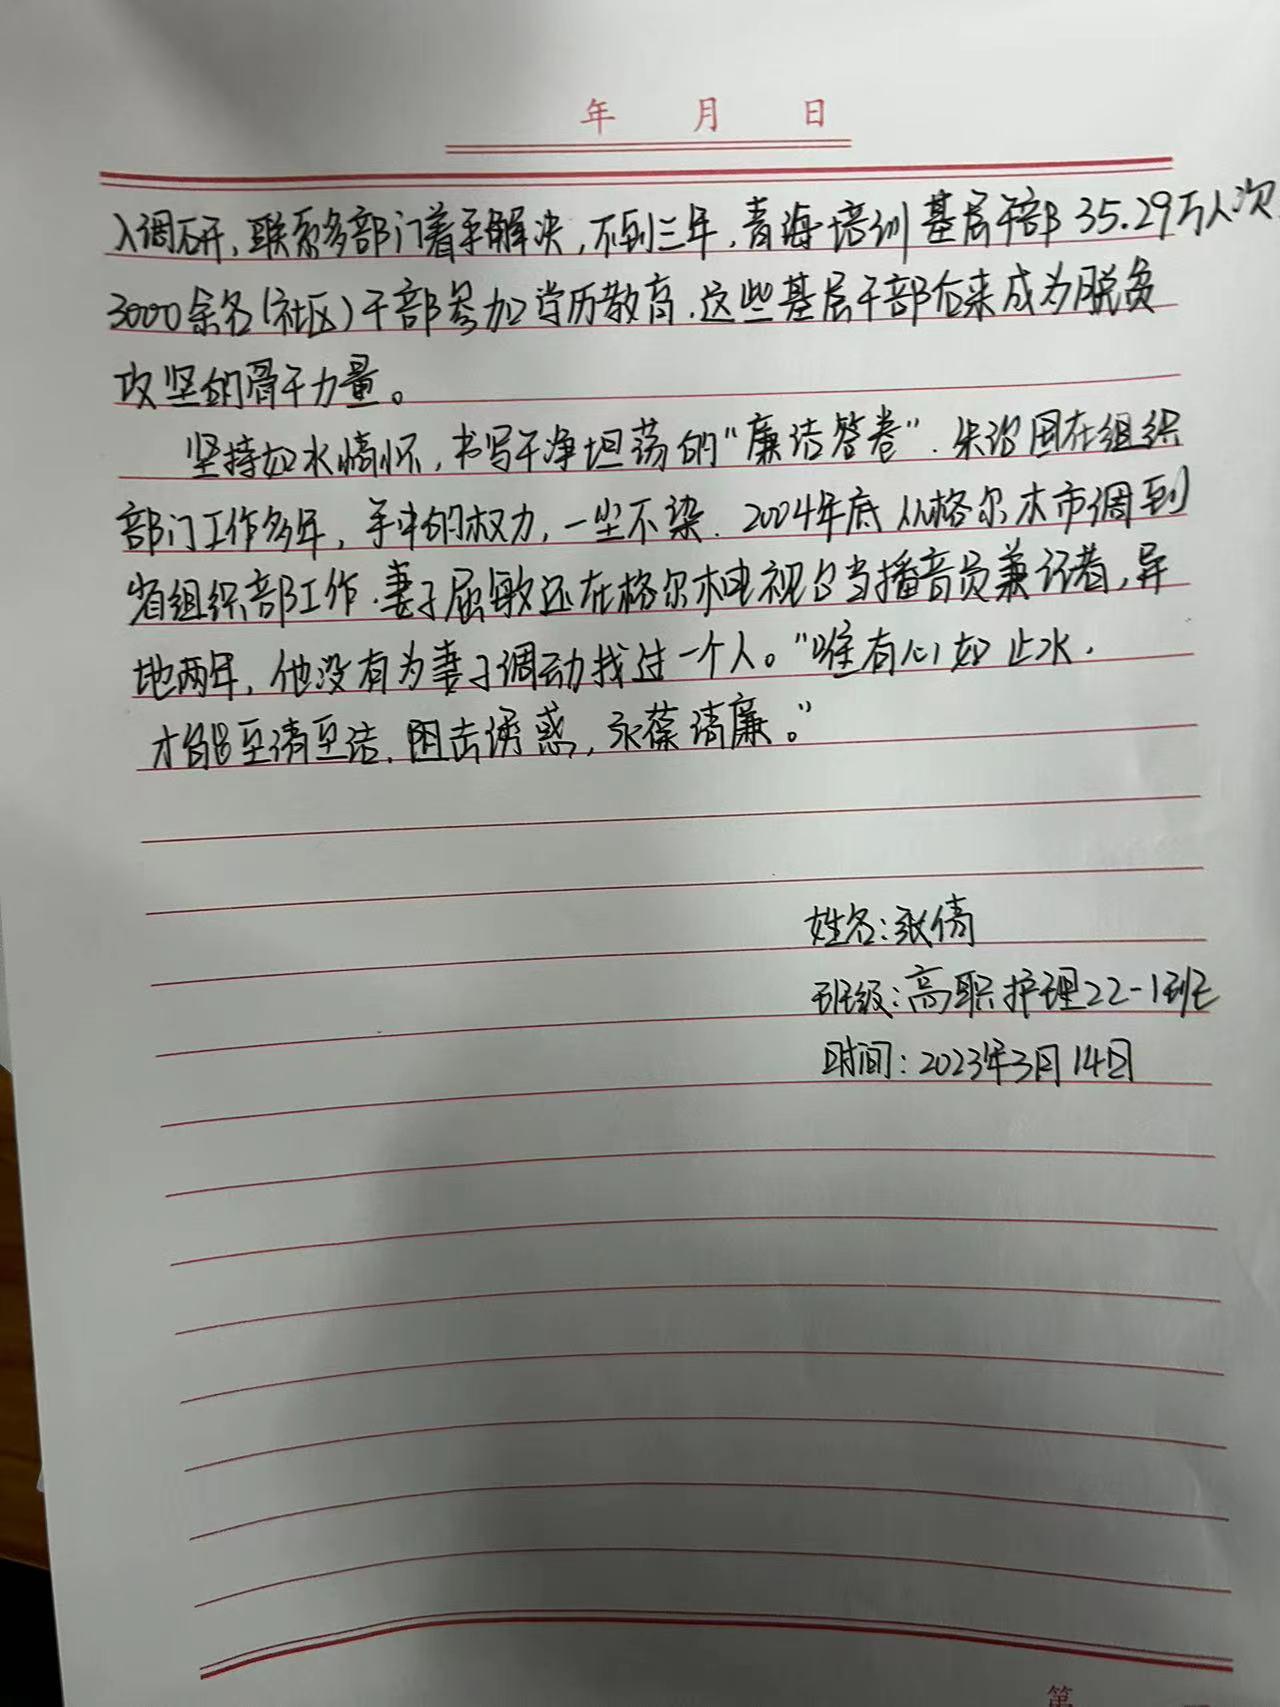 年 月 日
入调研，联系多部门着手解决，不到三年，青海培训基层干部35.29万人次
3000余名(社区)干部参加学历教育.这些基层干部后来成为脱贫
攻坚的骨干力量。
坚持如水情怀，书写干净坦荡的"廉洁答卷".朱治国在组织
部门工作多年，手中的权力，一尘不染.2004年底从格尔木市调到
省组织部工作.妻子屈敏还在格尔木电视台当播音员兼记者，异
地两年，他没有为妻子调动找过一个人。"唯有心如止水.
才能至清至洁.阻击诱惑，永葆清廉。"
姓名：张倩
班级：高职护理22-1班
时间：2023年3月14日
第